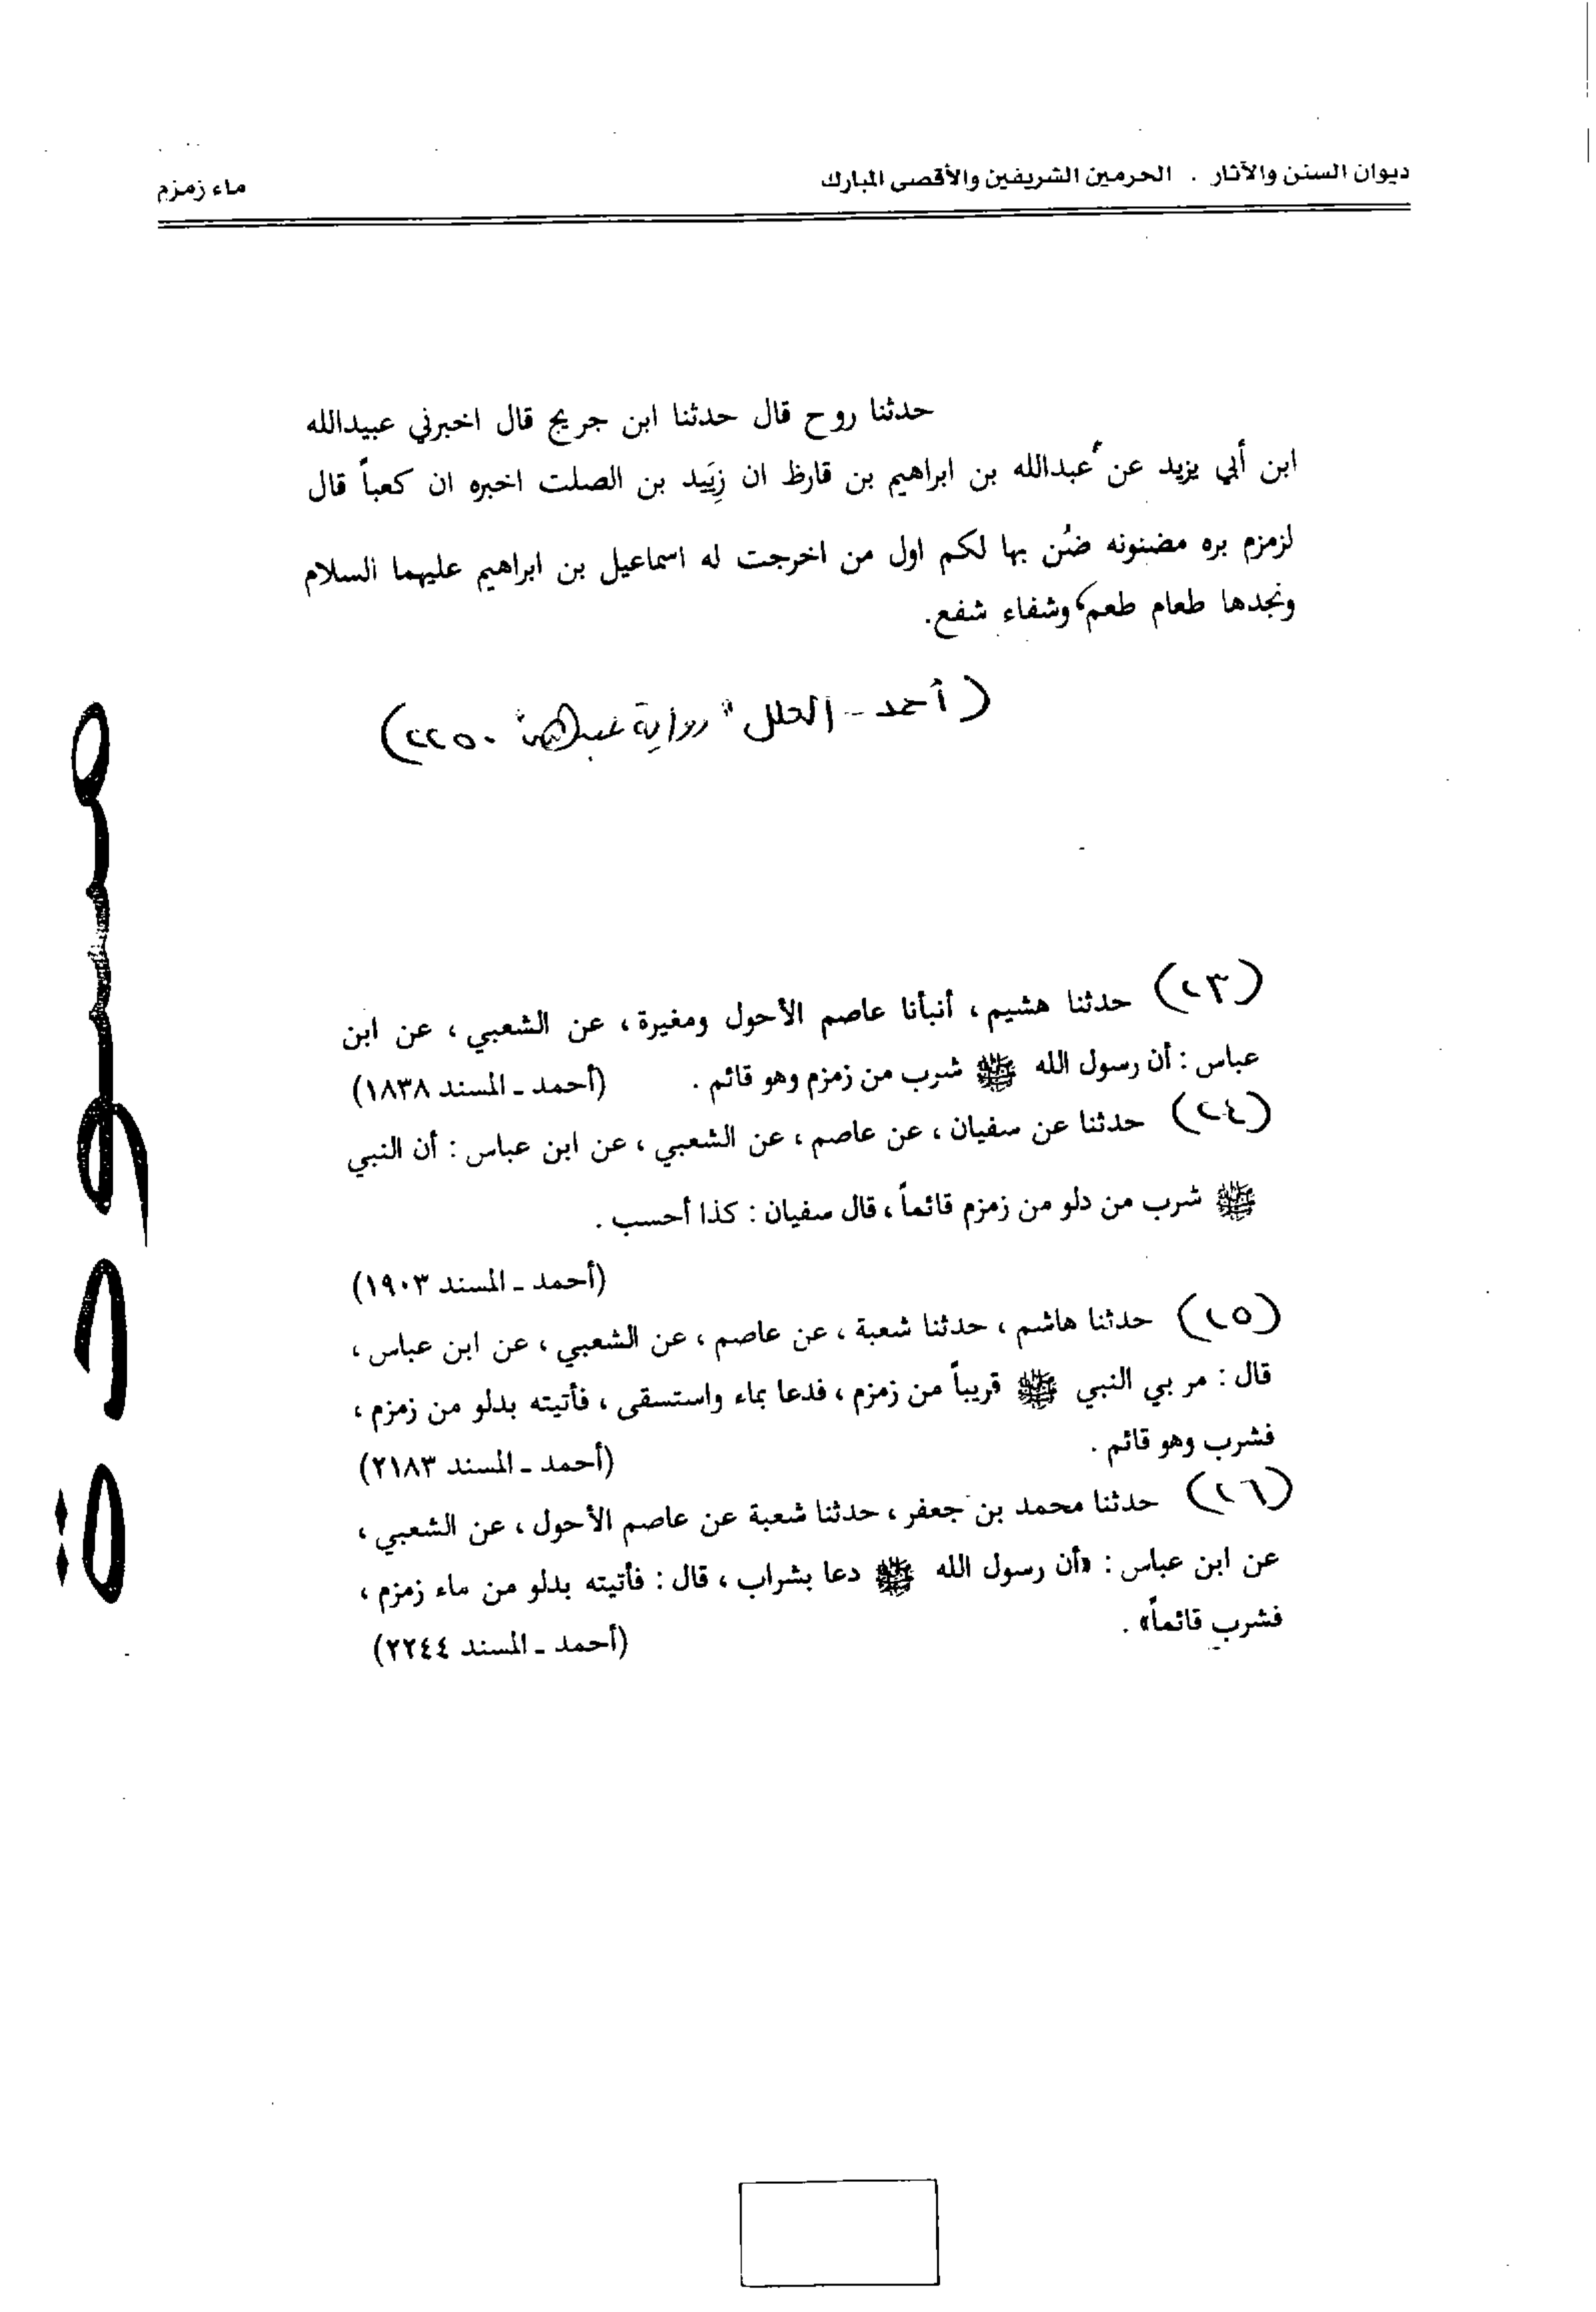 ديوان السنن والآثار . الحرمين الشريفين والأقصى المبارك
ماء زمزم
حدثنا روح قال حدثنا ابن جريج قال اخبرني عبيدالله
ابن أبي يزيد عن عبدالله بن ابراهيم بن قارظ ان زِيَيد بن الصلت اخبره ان كعباً قال
لزمزم بره مضنونه ضُن بها لكم اول من اخرجت له اسماعيل بن ابراهيم عليهما السلام
ونجدها طعام طعم، وشفاء شفع.
(أحمد - العلل "رواية عبدالله" ٢٢٥٠)
(٢٣) حدثنا هشيم ، أنبأنا عاصم الأحول ومغيرة ، عن الشعبي ، عن ابن
عباس : أن رسول الله ﷺ شرب من زمزم وهو قائم . (أحمد ـ المسند ١٨٣٨)
(٢٤) حدثنا عن سفيان ، عن عاصم ، عن الشعبي ، عن ابن عباس : أن النبي
ﷺ شرب من دلو من زمزم قائماً ، قال سفيان : كذا أحسب .
(أحمد ـ المسند ١٩٠٣)
(٢٥) حدثنا هاشم ، حدثنا شعبة ، عن عاصم ، عن الشعبي ، عن ابن عباس ،
قال : مر بي النبي ﷺ قريباً من زمزم ، فدعا بماء واستسقى ، فأتيته بدلو من زمزم ،
فشرب وهو قائم . (أحمد ـ المسند ٢١٨٣)
(٢٦) حدثنا محمد بن جعفر ، حدثنا شعبة عن عاصم الأحول ، عن الشعبي ،
عن ابن عباس : «أن رسول الله ﷺ دعا بشراب ، قال : فأتيته بدلو من ماء زمزم ،
فشرب قائماً» . (أحمد ـ المسند ٢٢٤٤)
مسودة